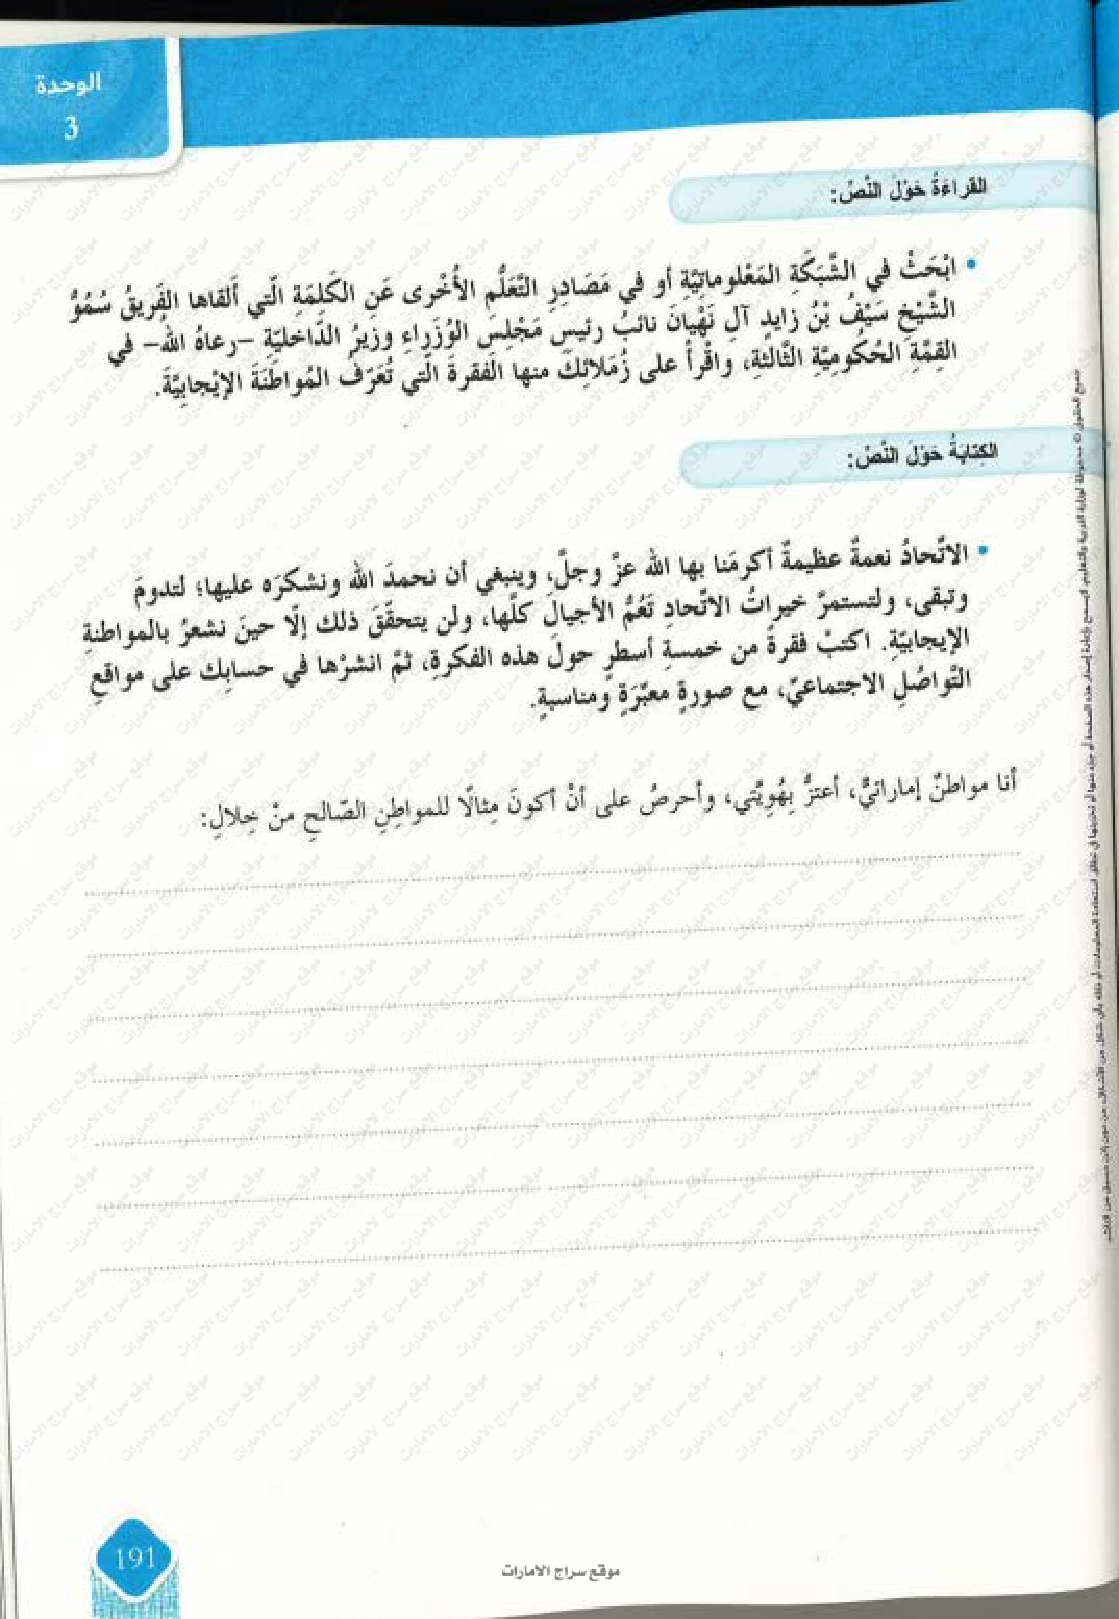 الوحدة
3
القراءَةُ حَوْلَ النَّصْ:
• ابْحَثْ في الشَّبَكَة المَعْلوماتِيَّةِ أو في مَصَادِرِ التَّعَلُّمِ الأُخْرى عَنِ الكَلِمَةِ الّتي أَلقاها الفَريقُ سُمُوُّ
الشَّيْخِ سَيْفُ بْنُ زايدٍ آلِ نَهْيانَ نائبُ رئيسِ مَجْلِسِ الوُزَراءِ وزيرُ الدّاخليّةِ –رعاهُ الله– في
القِمَّةِ الحُكوميَّةِ الثّالثةِ، واقْرأْ على زُمَلائِكَ منها الفقرةَ الّتي تُعَرّفُ المُواطَنَةَ الإيْجابيَّةَ.
الكِتابَةُ حَوْلَ النَّصْ:
• الاتّحادُ نعمةٌ عظيمةٌ أكرمَنا بها الله عزَّ وجلَّ، وينبغي أن نحمدَ الله ونشكرَه عليها؛ لتدومَ
وتبقى، ولتستمرَّ خيراتُ الاتّحادِ تَعُمُّ الأجيالَ كلَّها، ولن يتحقّقَ ذلك إلّا حينَ نشعرُ بالمواطنةِ
الإيجابيّةِ. اكتبْ فقرةً من خمسةِ أسطرٍ حولَ هذه الفكرةِ، ثمَّ انشرْها في حسابِك على مواقعِ
التَّواصُلِ الاجتماعيّ، مع صورةٍ معبّرَةٍ ومناسبةٍ.
أنا مواطنٌ إماراتيٌّ، أعتزُّ بِهُويَّتي، وأحرصُ على أنْ أكونَ مِثالًا للمواطِنِ الصّالحِ منْ خِلالِ:
191
موقع سراج الامارات